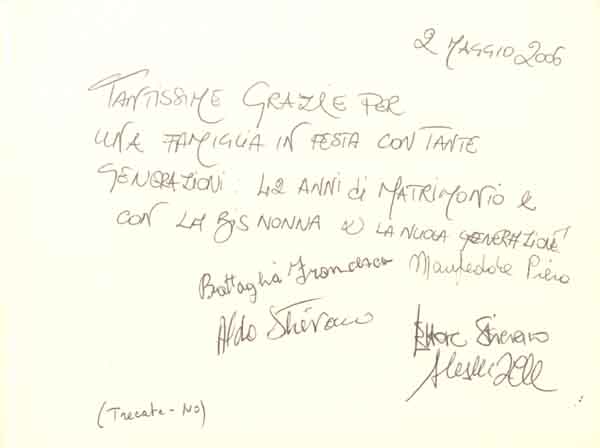 2 MAGGIO 2006
TANTISSIME GRAZIE PER
UNA FAMIGLIA IN FESTA CON TANTE
GENERAZIONI: 42 ANNI di MATRIMONIO e
CON LA BIS NONNA e LA NUOVA GENERAZIONE!
Battaglia Francesco Manfredore Piero
Aldo
(Trecate - NO)